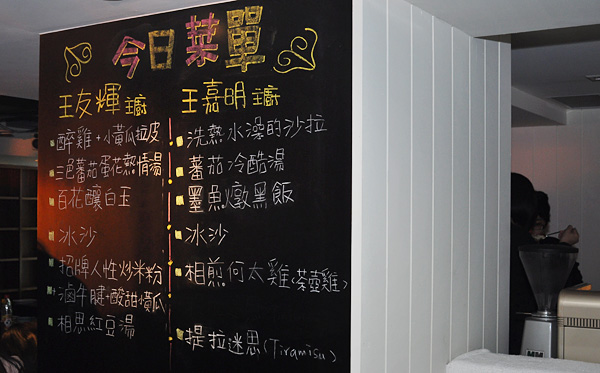 今日菜單
王友輝主廚
醉雞+小黃瓜拉皮
三色蕃茄蛋花熱情湯
百花釀白玉
冰沙
招牌人性炒米粉
+滷牛腱+酸甜小黃瓜
相思紅豆湯
王嘉明主廚
洗熱水澡的沙拉
蕃茄冷酷湯
墨魚燉黑飯
冰沙
相煎何太雞(茶壺雞)
提拉迷思(Tiramisu)